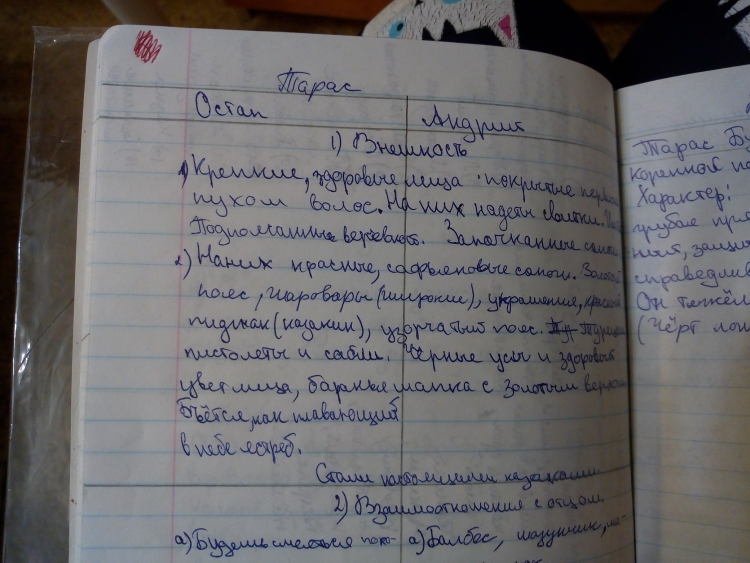 Тарас
Остап
Андрий
1) Внешность
1) Крепкие, здоровые лица покрытые
пухом волос. На них надеты свитки.
Подпоясанные верёвкой. Запачканные
2) На них красные, сафьяновые сапоги. Золотой
пояс, шаровары (широкие), украшения, красный
пиджак (казакин), узорчатый пояс.
пистолеты и сабли. Чёрные усы и здоровый
цвет лица, баранья шапка с золотым верхом
Бьётся, как плавающий
в небе ястреб.
Стали настоящими казаками
2) Взаимоотношения с отцом
а) Будешь смеяться поко-
а) Балбес, мазунчик,
Тарас Бу
коренной по
Характер:
грубая пря
справедлив
Он тяжёл
(Чёрт